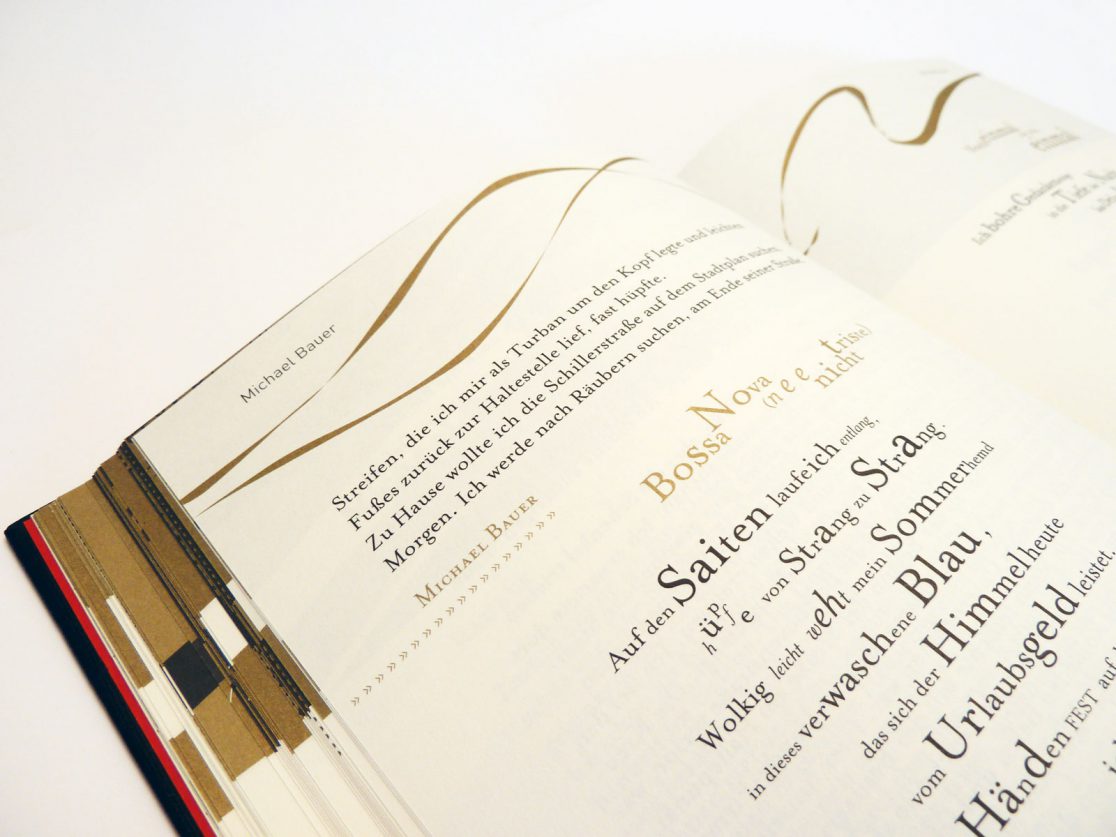 Michael Bauer
Streifen, die ich mir als Turban um den Kopf legte und leichten
Fußes zurück zur Haltestelle lief, fast hüpfte.
Zu Hause wollte ich die Schillerstraße auf dem Stadtplan suchen
Morgen. Ich werde nach Räubern suchen, am Ende seiner Straße
MICHAEL BAUER
»»»»»»»»»»»»»»»»
Bossa Nova (nee triste)
nicht
Auf den Saiten laufe ich entlang,
hüpfe von Strang zu Strang.
Wolkig leicht weht mein Sommerhemd
in dieses verwaschene Blau,
das sich der Himmel heute
vom Urlaubsgeld leistet.
Händen FEST auf
einmal
einmal
Ich bohre Gedankentürme
in die Tiefe